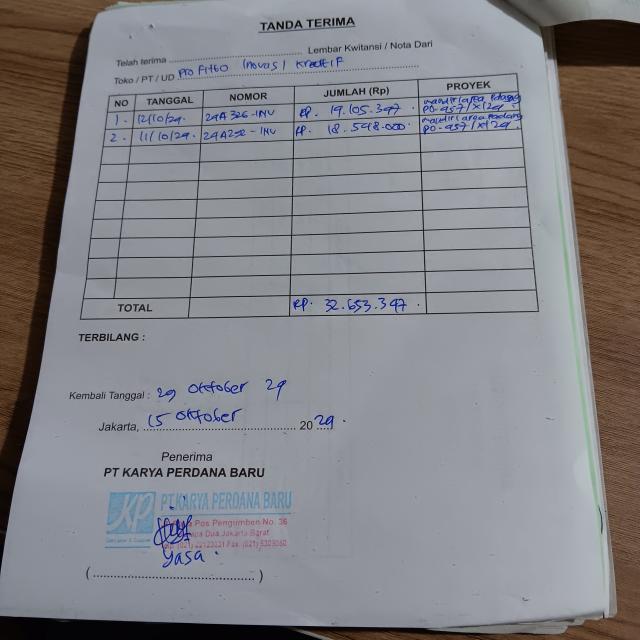 TANDA TERIMA
Telah terima .......... Lembar Kwitansi / Nota Dari
Toko / PT / UD Profitto Inovasi Kreatif
NO TANGGAL NOMOR JUMLAH (Rp) PROYEK
1. 12/10/24. 24A326-INV RP. 14.105.347 mandiri area Padang PO-457/X/24
2. 11/10/24. 24A292-INV RP. 18.548.000 mandiri area Padang PO-457/X/24
TOTAL RP. 32.653.347
TERBILANG :
Kembali Tanggal : 29 Oktober 24
Jakarta, 15 Oktober 2024.
Penerima
PT KARYA PERDANA BARU
KP PT.KARYA PERDANA BARU
Pos Pengumben No. 36
Dua Jakarta Barat
Yasa.
(..........)